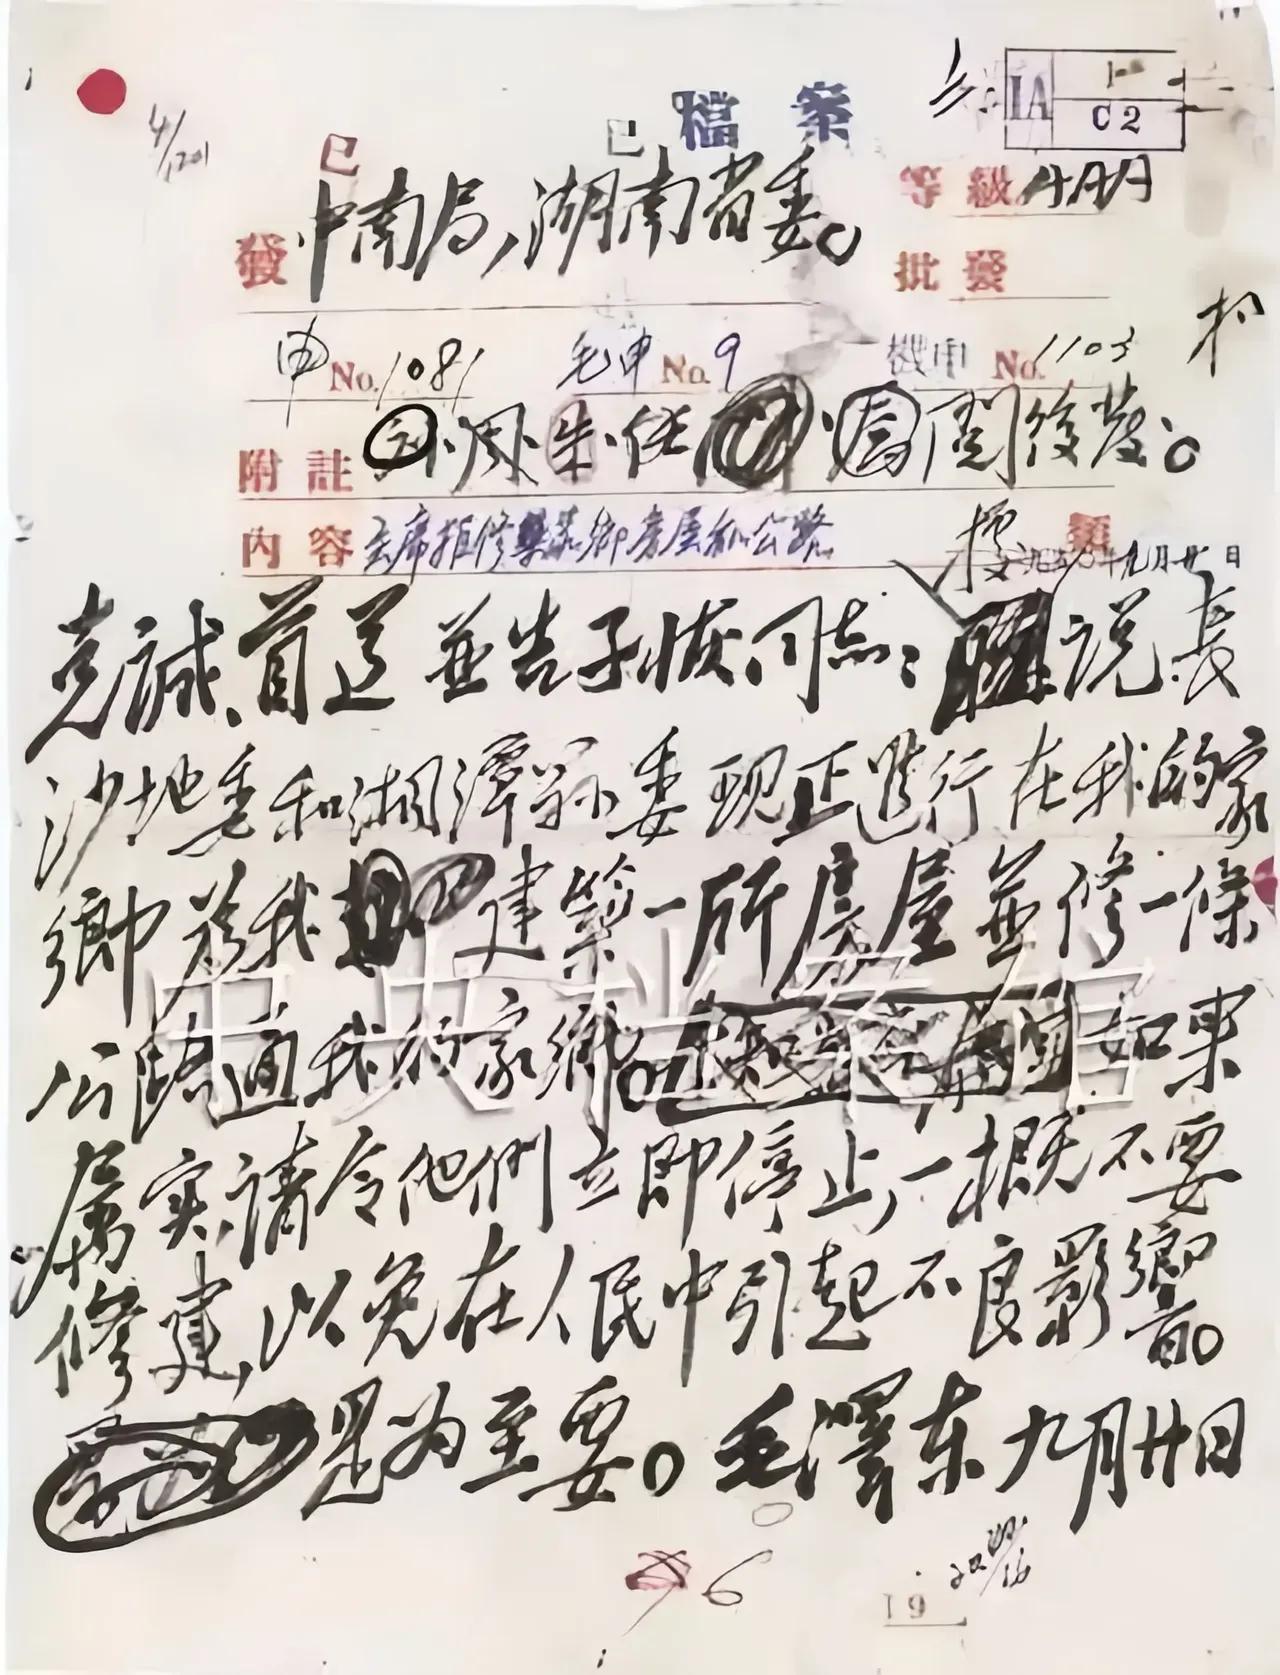 檔案
IA C2
4/1201
已 已
發 中南局,湖南省委。
等級 A 明
批發
申 No.1081 毛申 No.9 機申 No.1103
附註 刘·周·朱·任 閱後發。
內容 主席拒修築故鄉房屋和公路
一九五〇年九月廿日
克誠、首道並告子恢同志:据说長
沙地委和湘潭縣委現正進行在我的家
鄉為我建築一所房屋並修一條
公路通我的家鄉。如果
屬实,請令他們立即停止,一概不要
修建,以免在人民中引起不良影響。
是为至要。毛澤东 九月廿日
中央档案馆
6
19